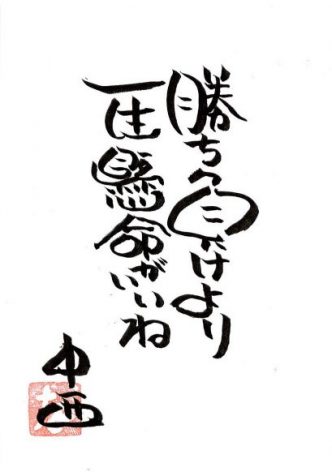 勝ち負けより
一生懸命がいいね
中西